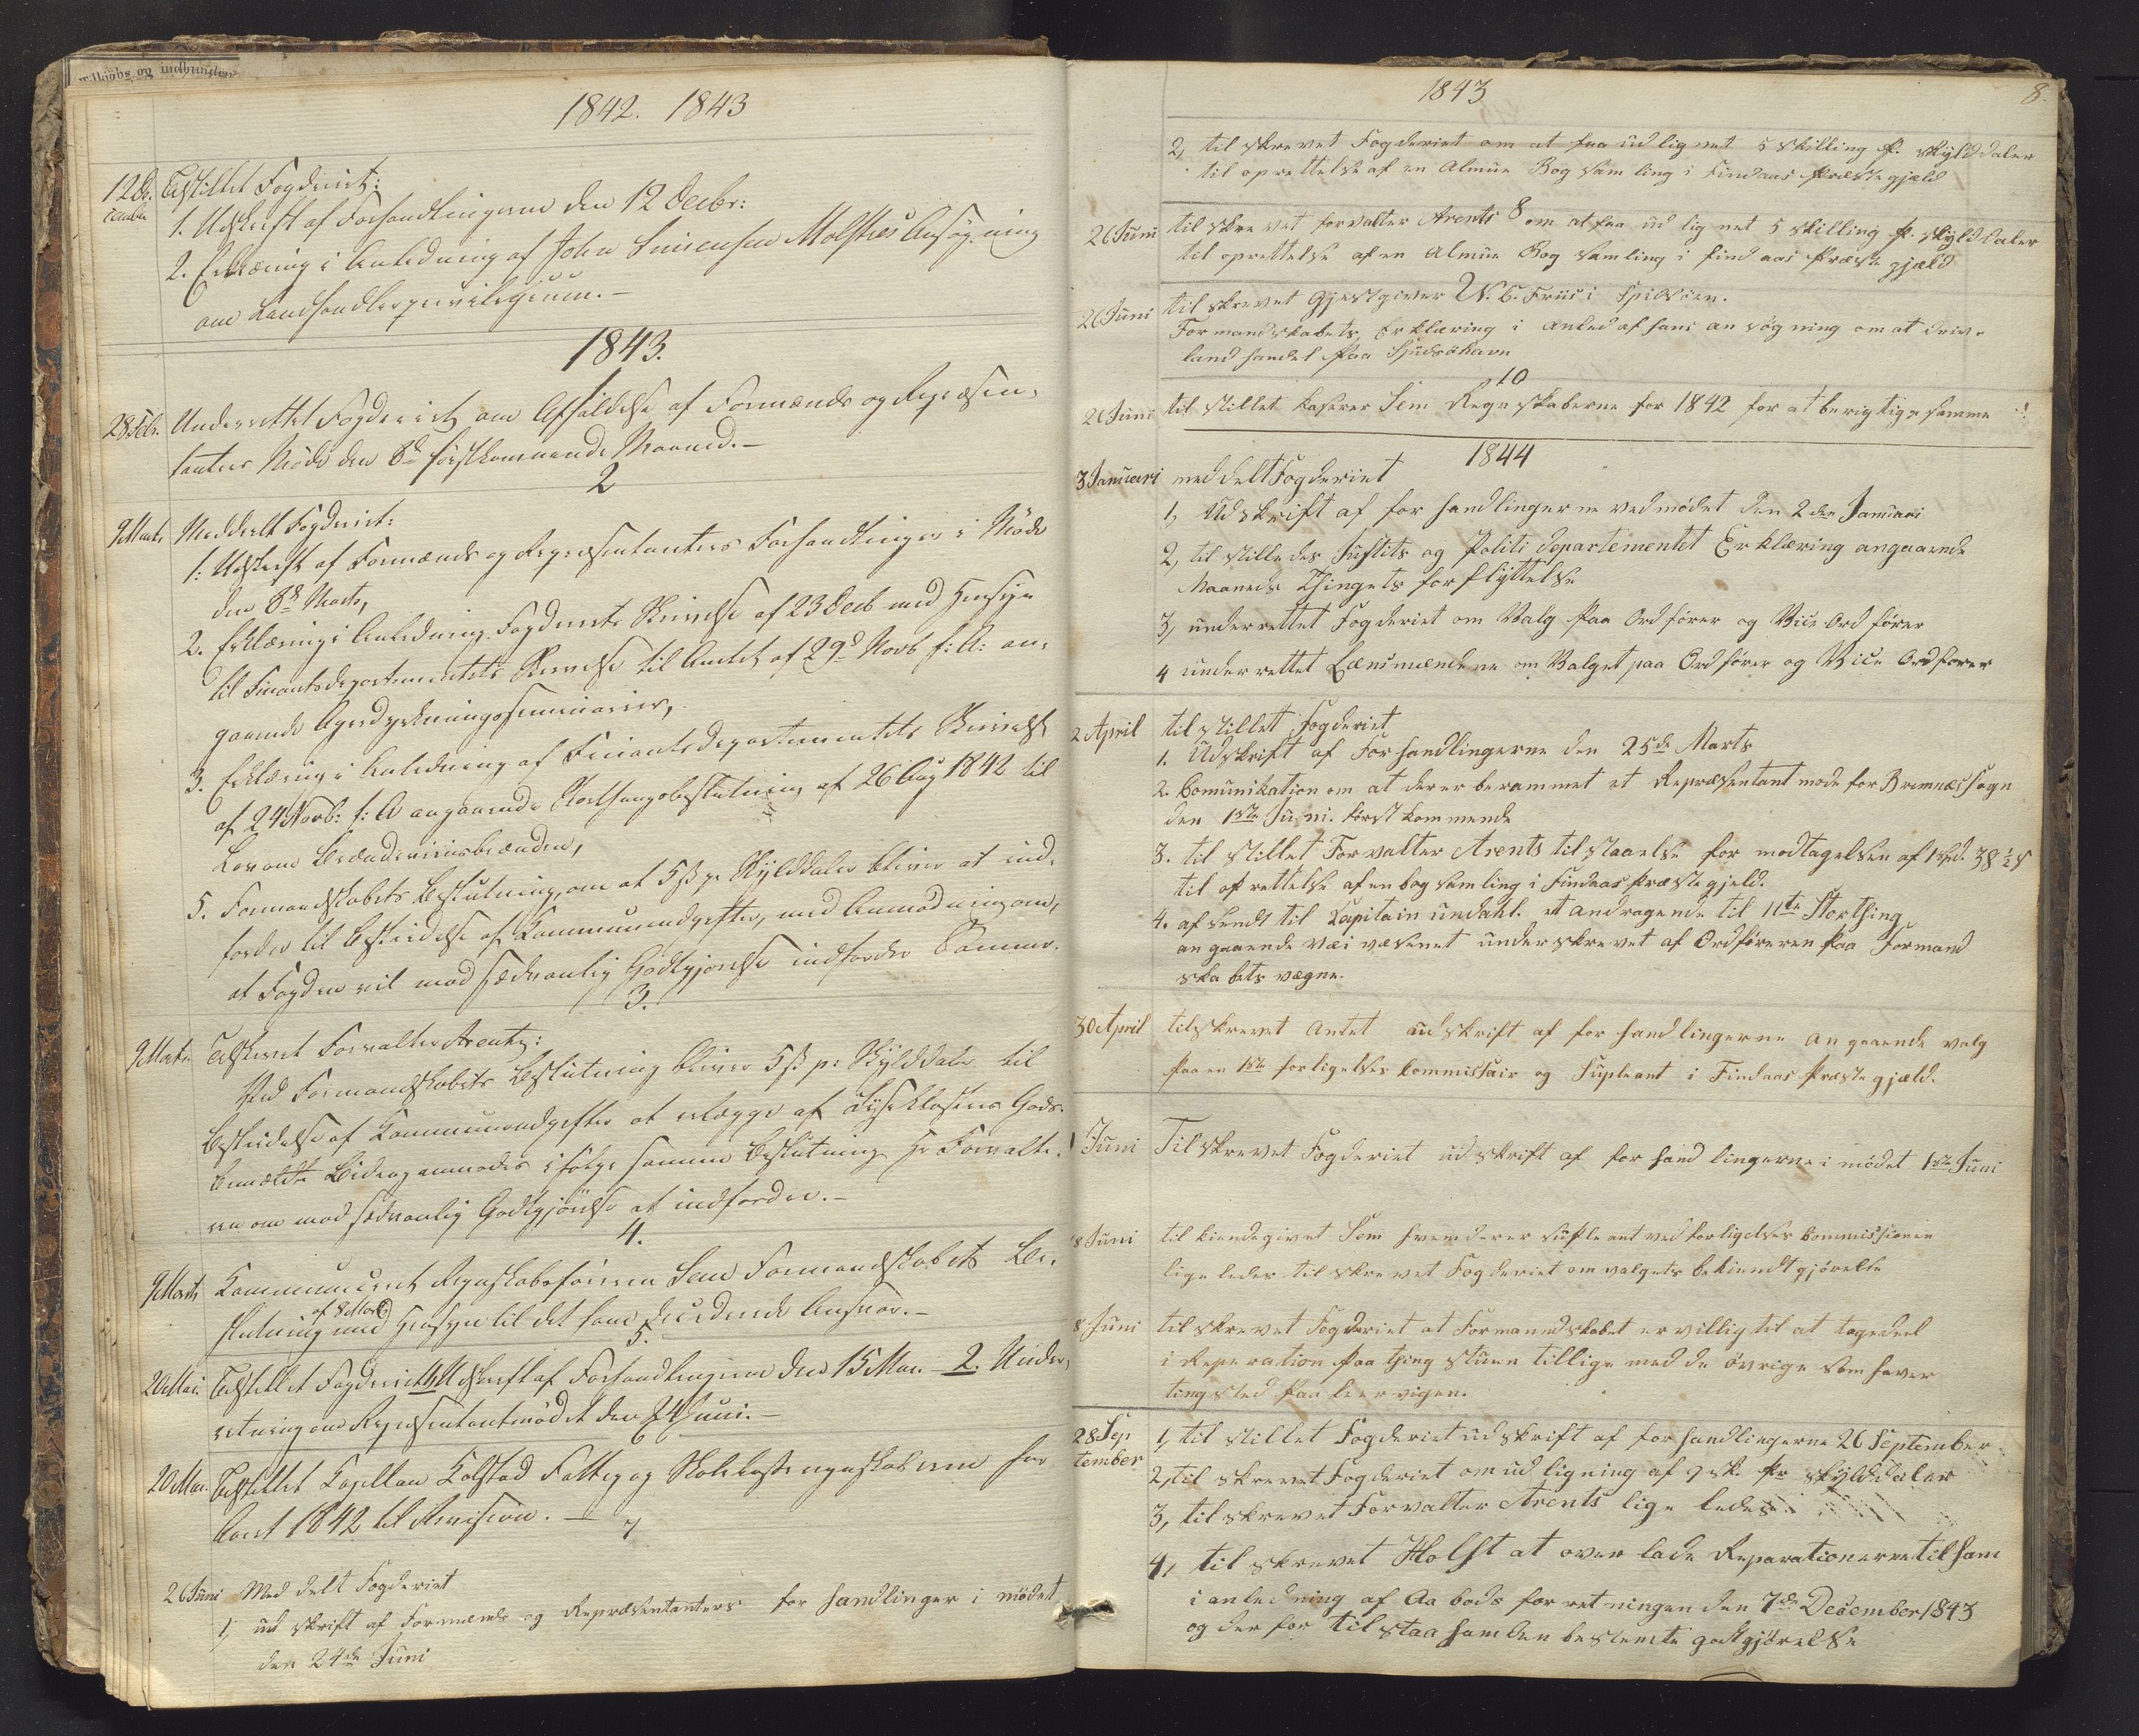 1842. 1843
12 De-
cember
Tilstillet Fogderiet:
1. Udskrift af Forhandlingerne den 12 Decbr:
2. Erklæring i Anledning af John Simensen Molstres Ansøgning
om Landhandlerprivilegium.-
1843.
1
28 Febr. Underrettet Fogderiet om Afholdelse af Formænds og Repræsen-
tanters Møde den 8de førstkommende Maaned.-
2
9 Marts Meddeelt Fogderiet:
1: Udskrift af Formænds og Repræsentanters Forhandlinger i Møde
den 8de Marts,
2. Erklæring i Anledning Fogderiets Skrivelse af 23 Decb med Hensyn
til Finantsdepartementets Skrivelse til Amtet af 29de Novb f: A: an-
gaaende Agerdyrkningsseminarier,
3. Erklæring i Anledning af Finantsdepartementets Skrivelse
af 24 Novb: f: A angaaende Storthingsbeslutning af 26 Aug 1842 til
Lov om Brændeviinsbrænden,
5. Formandskabets Beslutning, om at 5 ß pr Skylddaler bliver at ind-
fordre til Bestridelse af Kommuneudgifter, med Anmodning om,
at Fogden vil mod sædvanlig Godtgjørelse indfordre Samme.
3.
9 Marts Tilskrevet Forvalter Arentz:
Ved Formandskabets Beslutning bliver 5 ß pr: Skylddaler til
Bestridelse af Kommuneudgifter at erlægge af Lyseklosters Gods.
Bemeldte Bidrag anmodes ifølge samme Beslutning Hr Forvalte-
ren om mod sædvanlig Godtgjørelse at indfordre.-
4.
9 Marts Kommuniceret Regnskabsføreren Sem Formandskabets Be-
slutning af 8 Marts med Hensyn til det ham decederede Ansvar.-
5.
20 Mai. Tilstillet Fogderiet 1. Udskrift af Forhandlingerne den 15 Mai. - 2. Under-
retning om Repræsentantmødet den 24 Juni.-
6
20 Mai. Tilstillet Kapellan Kolstad Fattig og Skolekasseregnskaberne for
Aaret 1842 til Revision. -
7
26 Juni Med delt Fogderiet
1, ud skrift af Formænds og Repræsentanters for handlinger i mødet
den 24de Juni
1843
8.
2, til skrevet Fogderiet om at faa udlignet 5 skilling pr. skylddaler
til oprettelse af en Almue Bog samling i Findaas Præstegjæld
8
26 Juni til skrevet forvalter Arents om at faa ud lignet 5 skilling pr. skylddaler
til oprettelse af en Almue Bog samling i Findaas Præstegjæld
26 Juni til skrevet Gjæstgiver W. C. Friis i Spilsöen.
Formandskabets Erklæring i Anled af hans an søgning om at drive
land handel Paa Hudsöhavn
10
26 Juni til stillet kaserer Sem Regnskaberne for 1842 for at berigtige samme
1844
3 Januari med delt Fogderiet
1, Udskrift af for handlingerne ved mødet den 2den Januari
2, til stilledes Justits og Politi departementet Erklæring angaaende
Maaneds Thingets forflyttelse
3, underrettet Fogderiet om Valg Paa Ordfører og Vice Ord fører
4 underrettet Lænsmændene om Valget paa Ordfører og Vice Ordfører
2 April til stillet Fogderiet
1. Udskrift af Forhandlingerne den 25de Marts
2. Comunikation om at der er berammet et Repræsentant mode for Bremnæs sogn
den 1ste Juni. først kommende
3. til stillet Forvalter Arents tilstaaelse for modtagelsen af 1 spd. 38 ½ s
til oprettelse af en bog samling i Findaas Præstegjeld.
4. af sendt til Capitain undahl. et andragende til 11te Storthing
an gaaende vei væsenet underskrevet af Ordføreren Paa Formand
skabets vegne.
30 April tilskrevet Amtet udskrift af for handlingerne an gaaende valg
Paa en 1ste forligelses kommissair og Supleant i Findaas Præstegjæld.
1 Juni Til skrevet Fogderiet udskrift af for hand lingerne i mødet 1ste Juni
8 Juni til kiendegivet Sem hvem der er supleant ved forligelses Commissionen
ligeledes til skrevet Fogderiet om valgets bekiendtgjørelse
8 Juni til skrevet Fogderiet at Formandskabet er villig til at tage deel
i Reperation Paa thing stuen tillige med de øvrige som haver
tingsted Paa leervigen.
28 Sep
tember
1, til stillet Fogderiet udskrift af forhandlingerne 26 September
2, til skrevet Fogderiet om ud ligning af 7 sk. Pr skylddaler
3, til skrevet Forvalter Arents lige ledes
4, til skrevet Holst at over lade Reparationerne til ham
i anledning af Aabods forretningen den 7de December 1843
og der for tilstaa ham den bestemte godtgjörelse